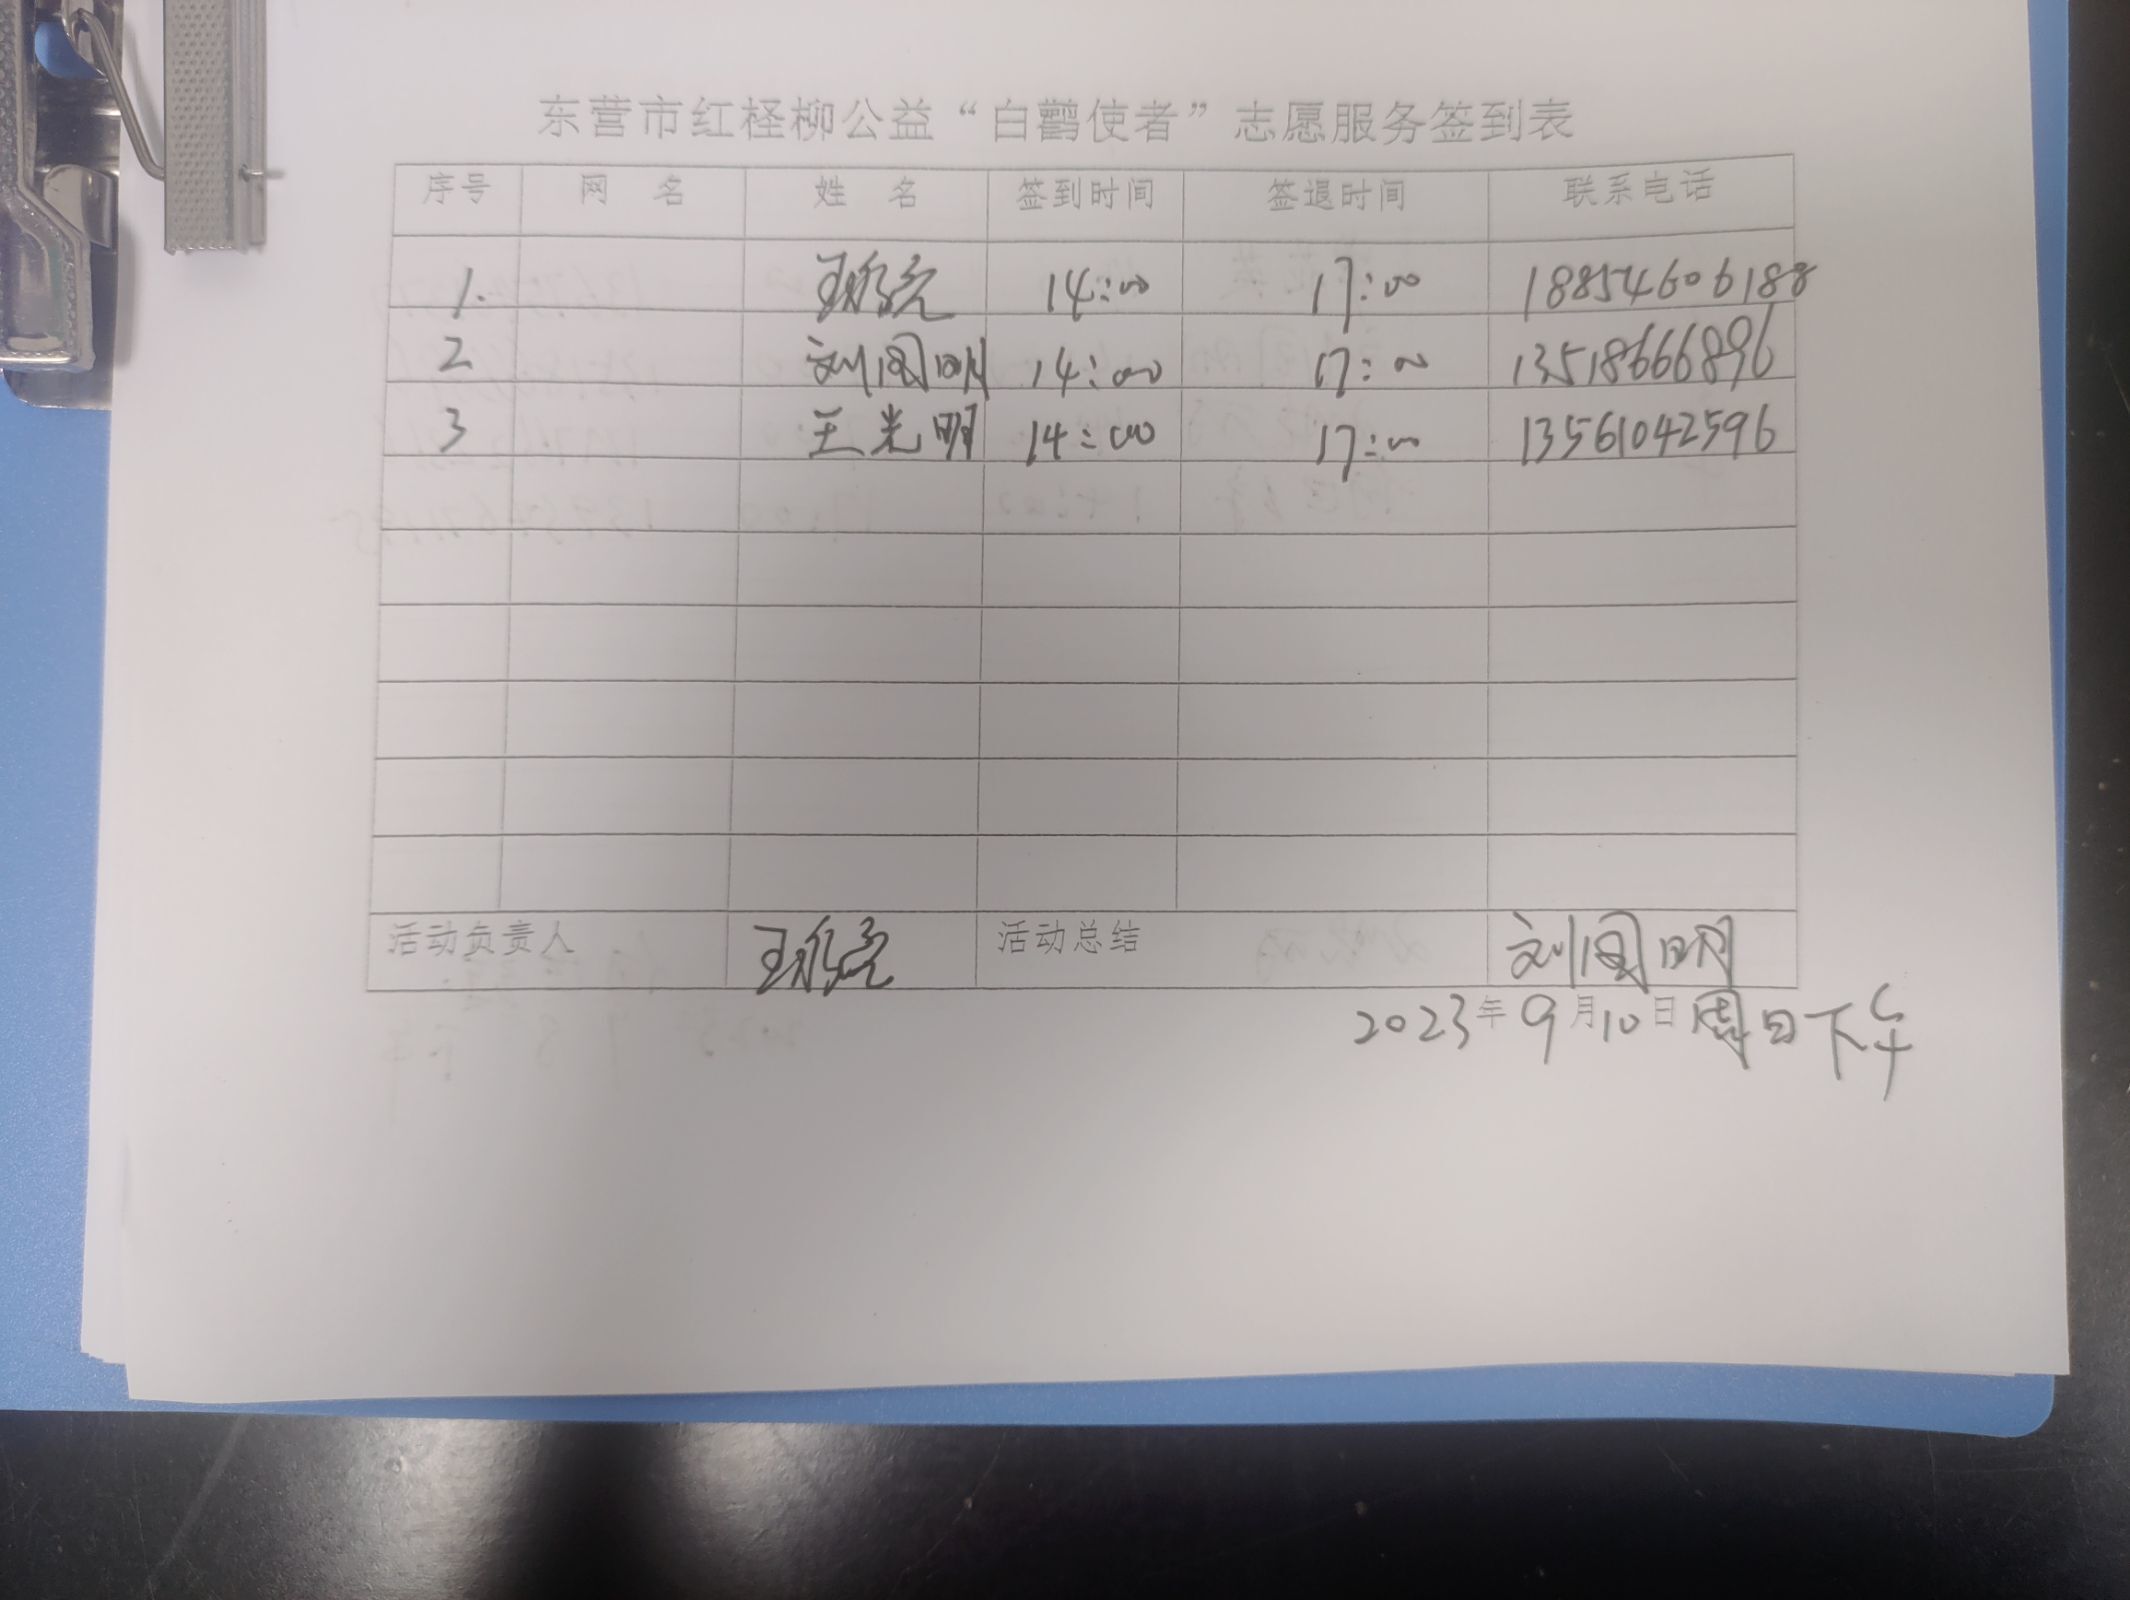 东营市红柽柳公益“白鹳使者”志愿服务签到表
序号 网 名 姓 名 签到时间 签退时间 联系电话
1. 14:00 17:00 18854606188
2 刘国明 14:00 17:00 13518666896
3 王光明 14:00 17:00 13561042596
活动负责人 活动总结 刘国明
2023年9月10日周日下午